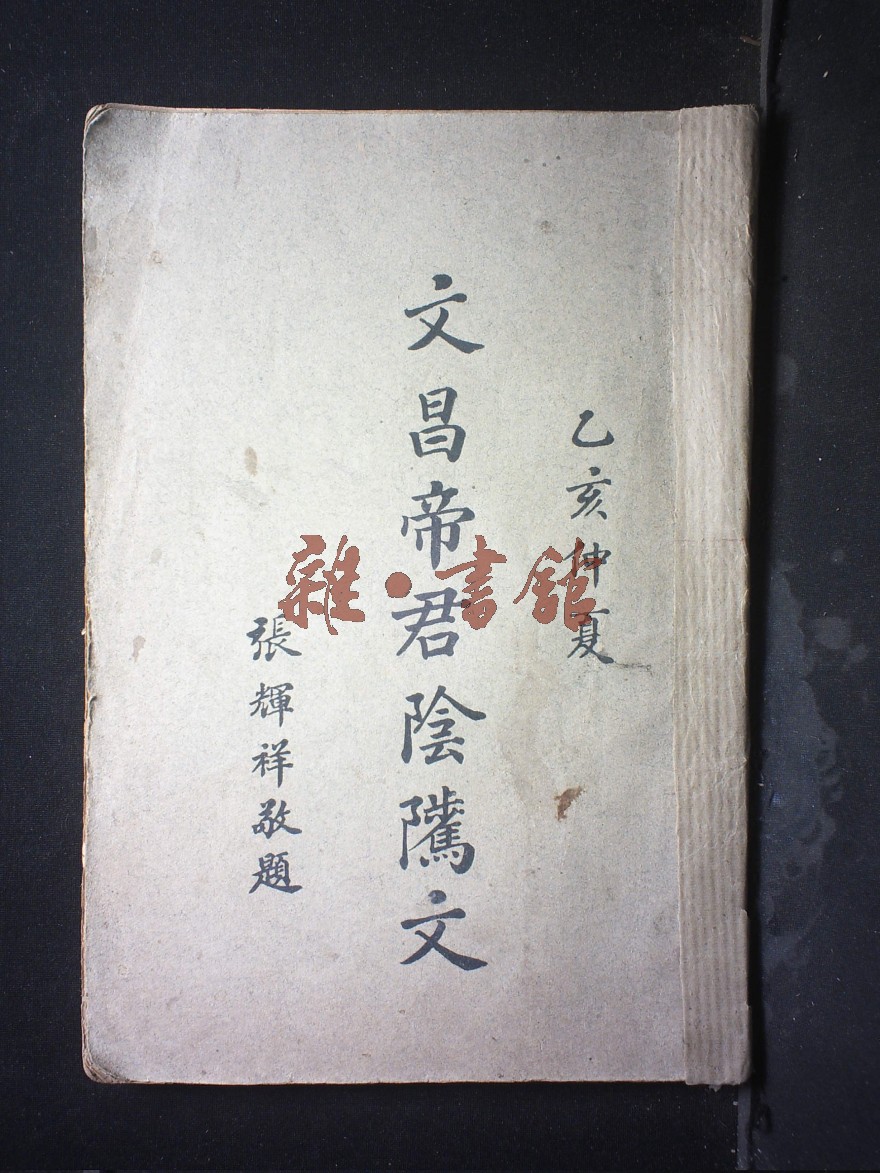 乙亥仲夏
文昌帝君陰隲文
張輝祥敬題
雜·書館